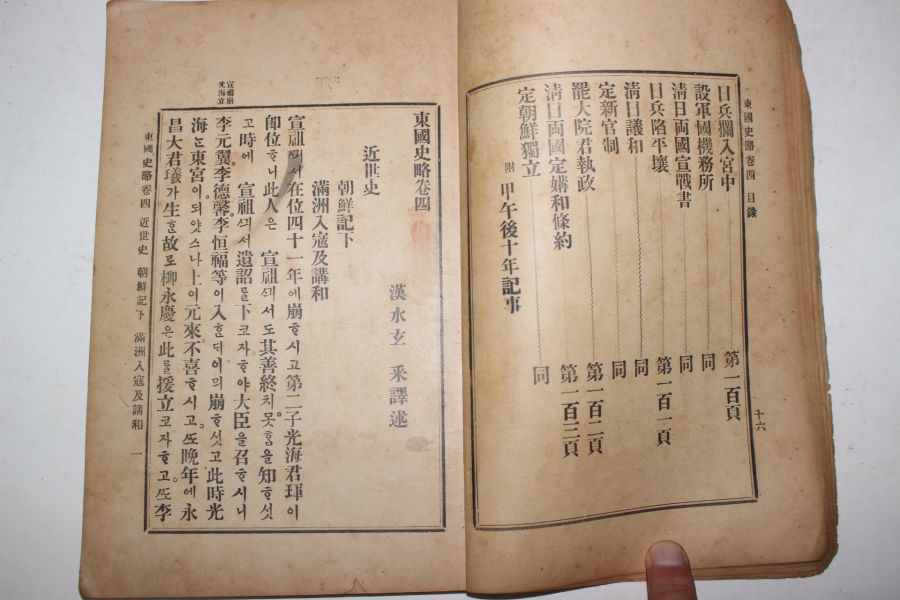 東國史略卷四 目錄
十六
日兵攔入宮中 第一百頁
設軍國機務所 同
淸日両國宣戰書 同
日兵陷平壤 第一百一頁
淸日議和 同
定新官制 同
罷大院君執政 第一百二頁
淸日両國定媾和條約 第一百三頁
定朝鮮獨立 同
附 甲午後十年記事
宣祖崩
光海立
東國史略卷四
漢水玄 采譯述
近世史
朝鮮記下
滿洲入寇及講和
宣祖ᄭᅴ셔在位四十一年에崩ᄒᆞ시고第二子光海君琿이
卽位ᄒᆞ니此人은 宣祖ᄭᅴ셔도其善終치못ᄒᆞᆷ을知ᄒᆞ섯
고時에 宣祖ᄭᅴ셔遺詔ᄅᆞᆯ下코자ᄒᆞ야大臣을召ᄒᆞ시니
李元翼。李德馨。李恒福等이入ᄒᆞᆫ더이믜崩ᄒᆞ섯고此時光
海ᄂᆞᆫ東宮이되얏스나上이元來不喜ᄒᆞ시고。ᄯᅩ晩年에永
昌大君㼁가生ᄒᆞᆫ故로柳永慶은此ᄅᆞᆯ援立코자ᄒᆞ고。ᄯᅩ李
東國史略卷四 近世史 朝鮮記下 滿洲入寇及講和 一